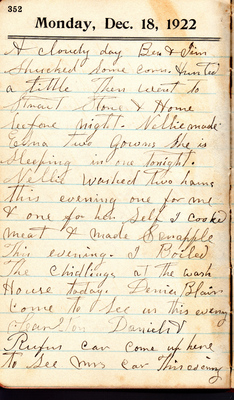 352
Monday, Dec. 18, 1922
A cloudy day Ben & Jim
shucked some corn hunted
a little Then went to
Stuart Stone & Home
before night. Nellie made
Edna two Gowns She is
Sleeping in one tonight.
Nellie washed two hams
this evening one for me
& one for her Self I cooked
meat & made
This evening. I Boiled
The Chidlings at the wash
House today. Denie Blair
come to See us this evening
Daniel &
Rufus car come up here
to See mrs car This evening